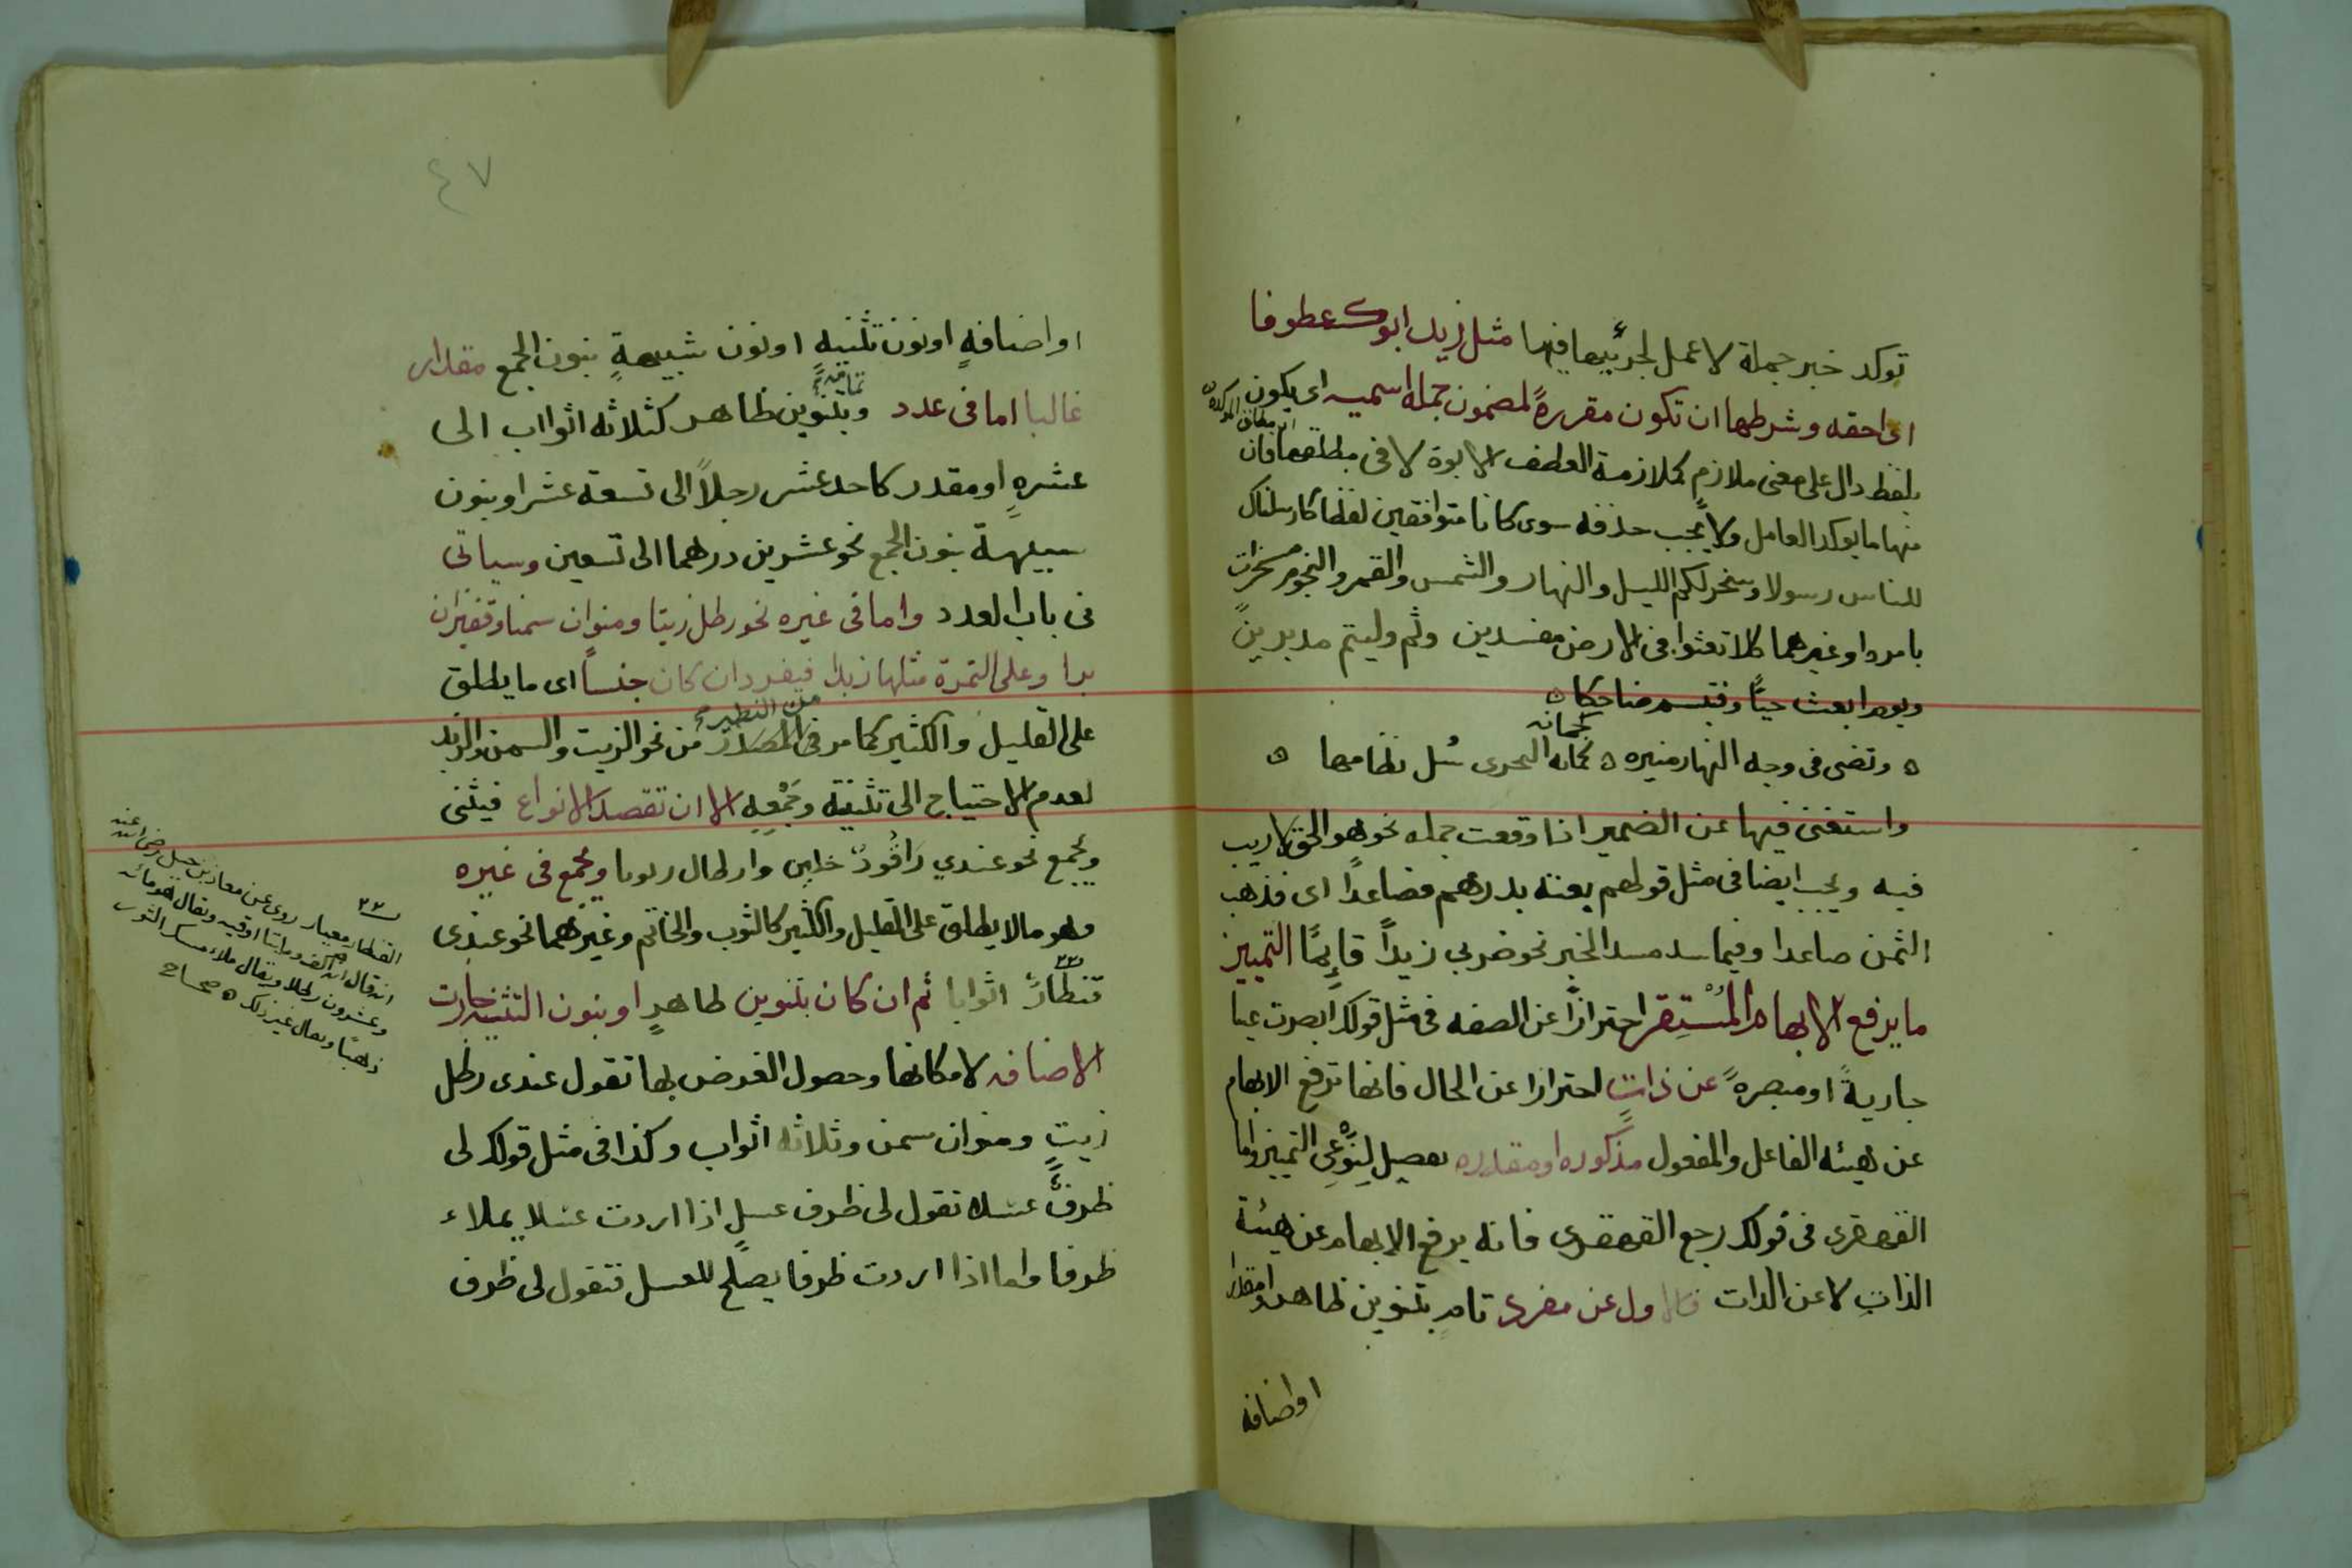 توكد خبر جملة لا عمل لجزئيها فيها مثل زيد ابوك عطوفا
اى احقه وشرطها ان تكون مقررةً لمضمون جملة اسميه اى يكون
بلفظ دال على معنى ملازم كملازمة العطف الابوة لا فى مطلقها فان
اى مطلق المؤكدة
منها ما يوكد العامل ولا يجب حذفه سوى كانا متوافقين لفظا كارسلناك
للناس رسولا وسخر لكم الليل والنهار والشمس والقمر والنجوم مسخرات
بامره او غيرهما كلا تعثوا فى الارض مفسدين وثم وليتم مدبرين
ويوم ابعث حيًّا وفتبسم ضاحكا ه
ه وتضى فى وجه النهار منيره ه كجمانة البحرى سُل نظامها ه
كجمانه
واستغنى فيها عن الضمير اذا وقعت جمله نحو هو الحق لا ريب
فيه ويجب ايضا فى مثل قولهم بعته بدرهم فصاعداً اى فذهب
الثمن صاعدا وفيما سد مسد الخبر نحو ضربي زيداً قايمًا التمييز
ما يرفع الابهام المُسْتِقر احترازًا عن الصفه فى مثل قولك ابصرت عينا
جاريةً او مبصرهً عن ذاتٍ احترازا عن الحال فانها ترفع الابهام
عن هيئه الفاعل والمفعول مذكوره او مقدره تفصيل لِنَوْعَى التمييز واما
القهقرى فى قولك رجع القهقرى فانه يرفع الابهام عن هيئة
الذاتِ لا عن الذات فالاول عن مفرد تام بتنوين ظاهر او مقدر
او اضافه
٤٧
او اضافةٍ او نون تثنيه او نون شبيهةٍ بنون الجمع مقدار
غالبا اما فى عدد وبتنوين ظاهر كثلاثه اثواب الى
عشرهٍ او مقدر كاحد عشر رجلاً الى تسعة عشر او بنون
شبيهة بنون الجمع نحو عشرين درهما الى تسعين وسياتى
فى باب العدد واما فى غيره نحو رطل زيتا ومنوان سمنا وقفيزان
برا وعلى التمرة مثلها زبدا فيفرد ان كان جنساً اى ما يطلق
من النظير
على القليل والكثير كما مر فى المصدر من نحو الزيت والسمن والزبد
لعدم الاحتياج الى تثنيته وجَمْعِهِ الا ان تقصد الانواع فيثنى
ويجمع نحو عندي رَاقُودٌ خلين وارطال زيوتا ويجمع فى غيره
وهو ما لا يطلق على القليل والكثير كالثوب والخاتم وغيرهما نحو عندى
قنطارٌ اثوابا ثم ان كان بتنوين ظاهرٍ او بنون التثنيه جازت
الاضافه لامكانها وحصول الغرض بها تقول عندى رطل
زيتٍ ومنوان سمن وثلاثه اثواب وكذا فى مثل قولك لى
ظرفٌ عسلا تقول لى ظرف عسلٍ اذا اردت عسلا يملاء
ظرفا واما اذا اردت ظرفا يصلح للعسل فتقول لى ظرف
القنطار معيار روى عن معاذ بن جبل رضى الله عنه
انه قال انه الف ومايتا اوقيه ويقال هو مائه
وعشرون رطلا ويقال ملاء مسك الثور
ذهبًا ويقال غير ذلك ه صحاح